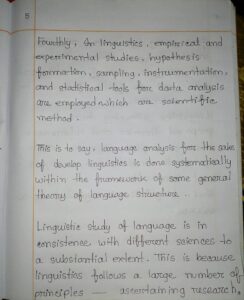 5
Fourthly, In linguistics, empirical and
experimental studies, hypothesis
formation, sampling, instrumentation,
and statistical tools for data analysis
are employed which are scientific
method.
This is to say, language analysis for the sake
of develop linguistics is done systematically
within the framework of some general
theory of language structure..
Linguistic study of language is in
consistence with different sciences to
a substantial extent. This is because
linguistics follows a large number of
principles — ascertaining research,